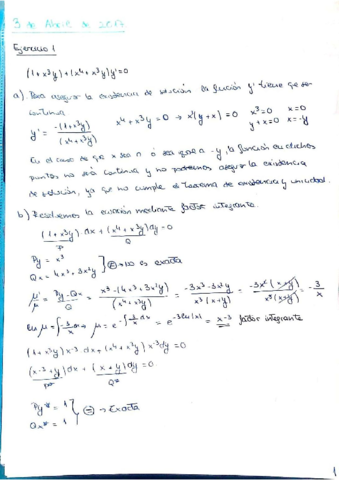 3 de Abril de 2017
Ejercicio 1
(1+x³y)+(x⁴+x³y)y'=0
a) Para asegurar la existencia de solución la función y' tiene que ser
continua
y' = -(1+x³y)/(x⁴+x³y) x⁴+x³y=0 → x³(y+x)=0 x³=0 x=0
y+x=0 x=-y
En el caso de que x sea 0 ó sea igual a -y, la función en dichos
puntos no será continua y no podremos asegurar la existencia
de solución, ya que no cumple el teorema de existencia y unicidad.
b) Resolvemos la ecuación mediante factor integrante.
(1+x³y)·dx+(x⁴+x³y)dy=0
P Q
Py = x³
Qx = 4x³+3x²y } ≠ → no es exacta
μ'/μ = (Py-Qx)/Q = (x³-(4x³+3x²y))/(x⁴+x³y) = (-3x³-3x²y)/(x³(x+y)) = -3x²(x+y)/(x³(x+y)) = -3/x
ln μ = ∫-3/x dx → μ = e^-∫3/x dx = e^-3ln(x) = x-3 factor integrante
(1+x³y)x-3 dx+(x⁴+x³y)x-3dy=0
(x-3+y)dx+(x+y)dy=0
P* Q*
Py*=1
Qx*=1 } = → Exacta
1